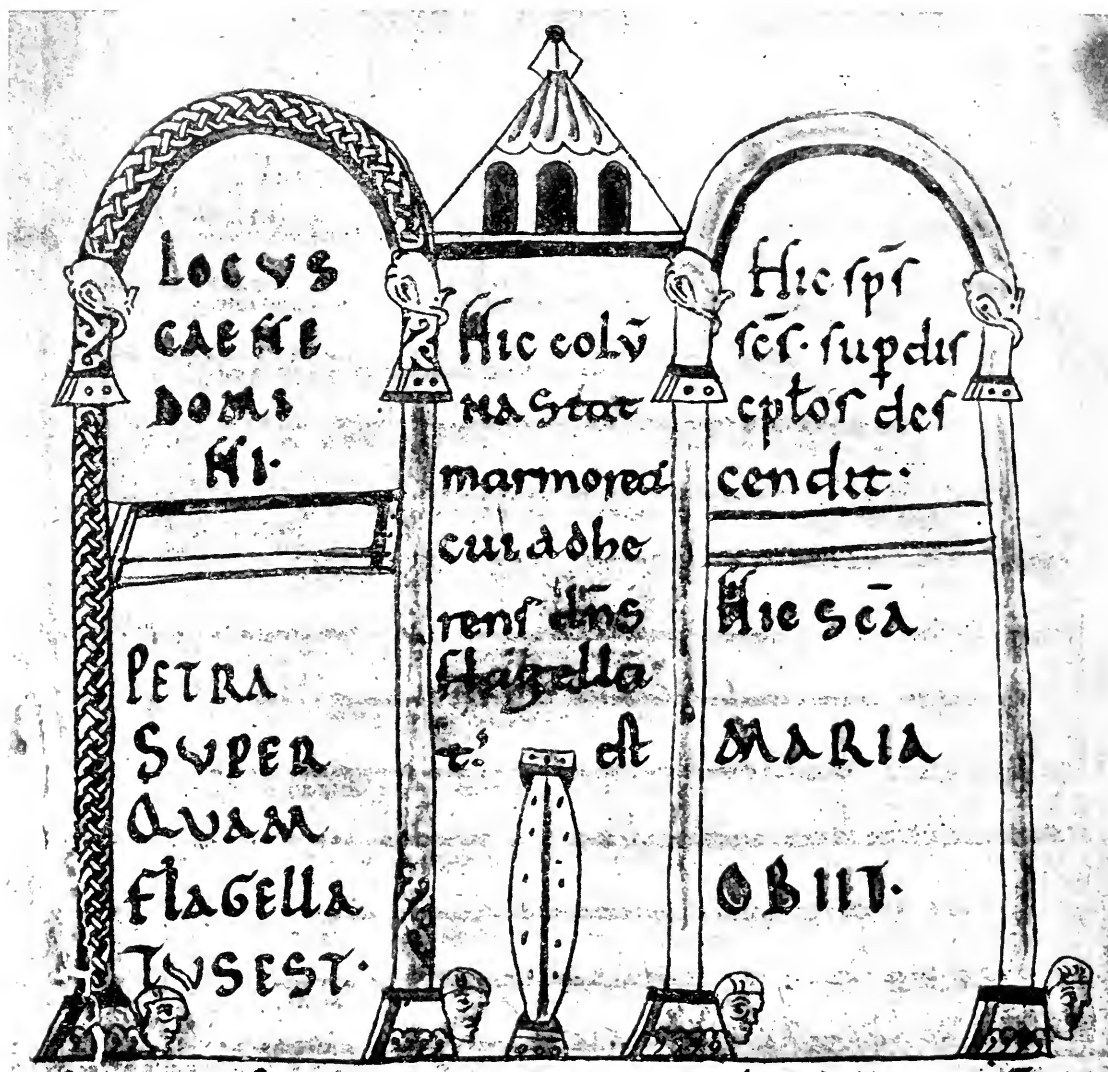 LOCVS
CAENE
DOMI
NI·
PETRA
SVPER
QVAM
FLAGELLA
TVS EST·
Hic colū
na stat
marmorea
cui adhe
rens dn̄s
flagella
t: ē st
Hic sp̄s
sc̄s· sup dis
cptos des
cendit·
Hic Scā
MARIA
OBIIT·